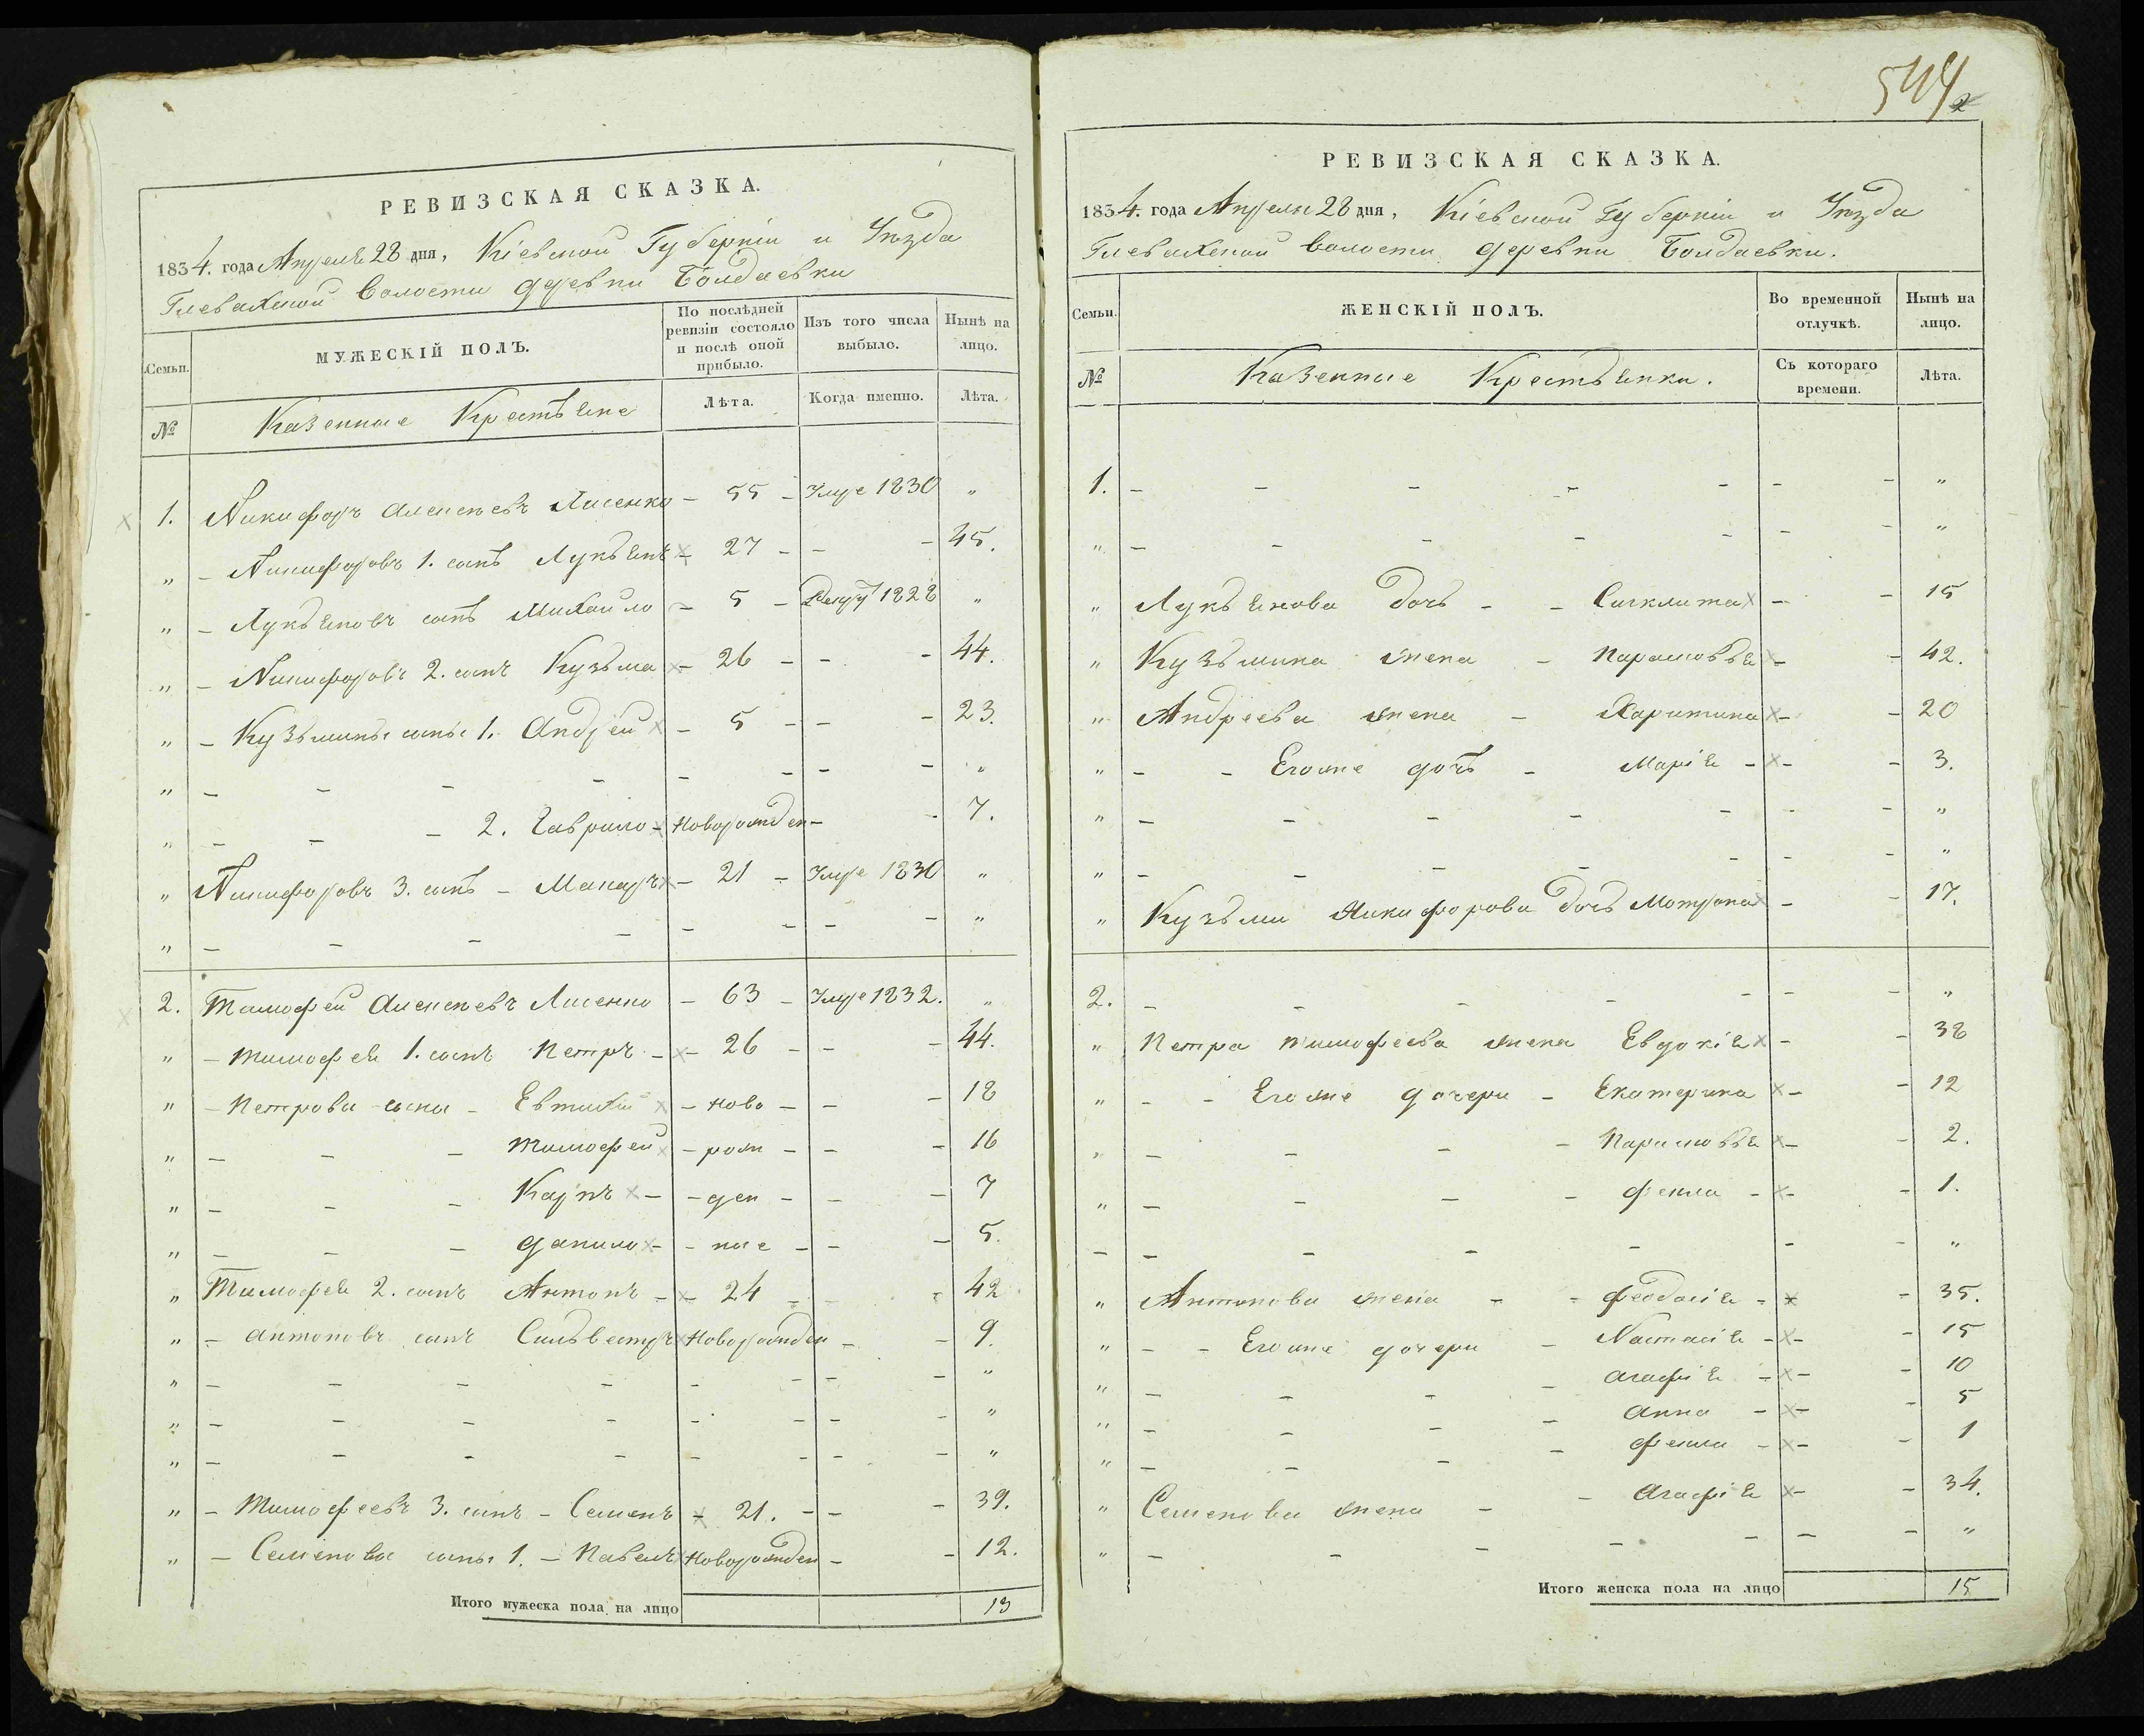 РЕВИЗСКАЯ СКАЗКА.
1834. года Апреля 28 дня, Кіевской Губерніи и Уѣзда
Глевахской Волости деревни Болдаевки
Семьи. МУЖЕСКІЙ ПОЛЪ. По послѣдней ревизіи состояло и послѣ оной прибыло. Изъ того числа выбыло. Нынѣ на лицо.
№ Казенные Крестьяне Лѣта. Когда именно. Лѣта.
1. Никифоръ Алексѣевъ Лисенко - 55 - Умре 1830 "
" - Никифоровъ 1. сынъ Лукьянъ - 27 - - - 45.
" - Лукьяновъ сынъ Михайло - 5 - Рекрут 1828 "
" - Никифоровъ 2. сынъ Кузьма - 26 - - - 44.
" - Кузьмины сыны 1. Андрей - 5 - - - 23.
" - - - - - - - - "
" - - - 2. Гаврило - Новорожден - - 7.
" Никифоровъ 3. сынъ - Макаръ - 21 - Умре 1830 "
" - - - - - - - - "
2. Тимофей Алексѣевъ Лисенко - 63 - Умре 1832. "
" - Тимофея 1. сынъ Петръ - - 26 - - - 44.
" - Петрова сыны - Евтихій - ново - - - 18
" - - - Тимофей - рож - - - 16
" - - - Карпъ - - ден - - - 7
" - - - Данило - - ные - - - 5.
" Тимофея 2. сынъ Антонъ - - 24 - - 42
" - Антоновъ сынъ Сильвестръ Новорожден - - 9.
" - - - - - - - - "
" - - - - - - - - "
" - - - - - - - - "
" - Тимофеевъ 3. сынъ - Семенъ - 21. - - - 39.
" - Семенова сыны 1. - Павелъ Новорожден - - 12.
Итого мужеска пола на лицо 13
544
2
РЕВИЗСКАЯ СКАЗКА.
1834. года Апреля 28 дня, Кіевской Губерніи и Уѣзда
Глевахской Волости деревни Болдаевки.
Семьи. ЖЕНСКІЙ ПОЛЪ. Во временной отлучкѣ. Нынѣ на лицо.
№ Казенные Крестьянки. Съ котораго времени. Лѣта.
1. - - - - - - - "
" - - - - - - - "
" Лукьянова дочь - - Сигклита - - 15
" Кузьмина жена - Парасковья - - 42.
" Андреева жена - Харитина - - 20
" - - Егоже дочь - Марія - - - 3.
" - - - - - - - "
" - - - - - - - "
" Кузьмы Никифорова дочь Мотрона - - 17.
2. - - - - - - - "
" Петра Тимофеева жена Евдокія - - 38
" - - Егоже дочери - Екатерина - - 12
" - - - - Парасковья - - 2.
" - - - - Фекла - - - 1.
- - - - - - - "
" Антонова жена - - Феодосія - - - 35.
" - - Егоже дочери - Настасія - - 15
" - - - - Агафія - - - 10
" - - - - Анна - - - 5
" - - - - Фекла - - - 1
" Семенова жена - - Агафія - - 34.
" - - - - - - - "
Итого женска пола на лицо 15